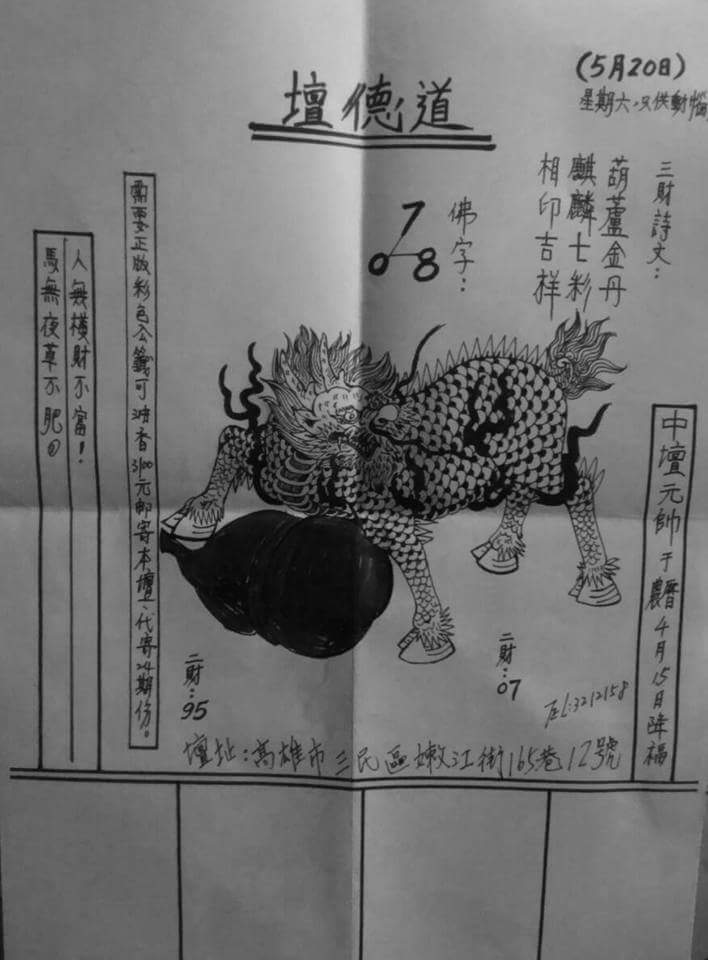 (5月20日)
星期六,只供動惱
道德壇
三財詩文:
葫蘆金丹
麒麟七彩
相印吉祥
佛字:
7
0 8
中壇元帥于農曆4月15日降福
二財:07
二財:95
需要正版彩色公籤可添香3100元郵寄本壇、代寄24期份。
人無橫財不富!
馬無夜草不肥。
TEL:3212158
壇址:高雄市三民區嫩江街165巷12號